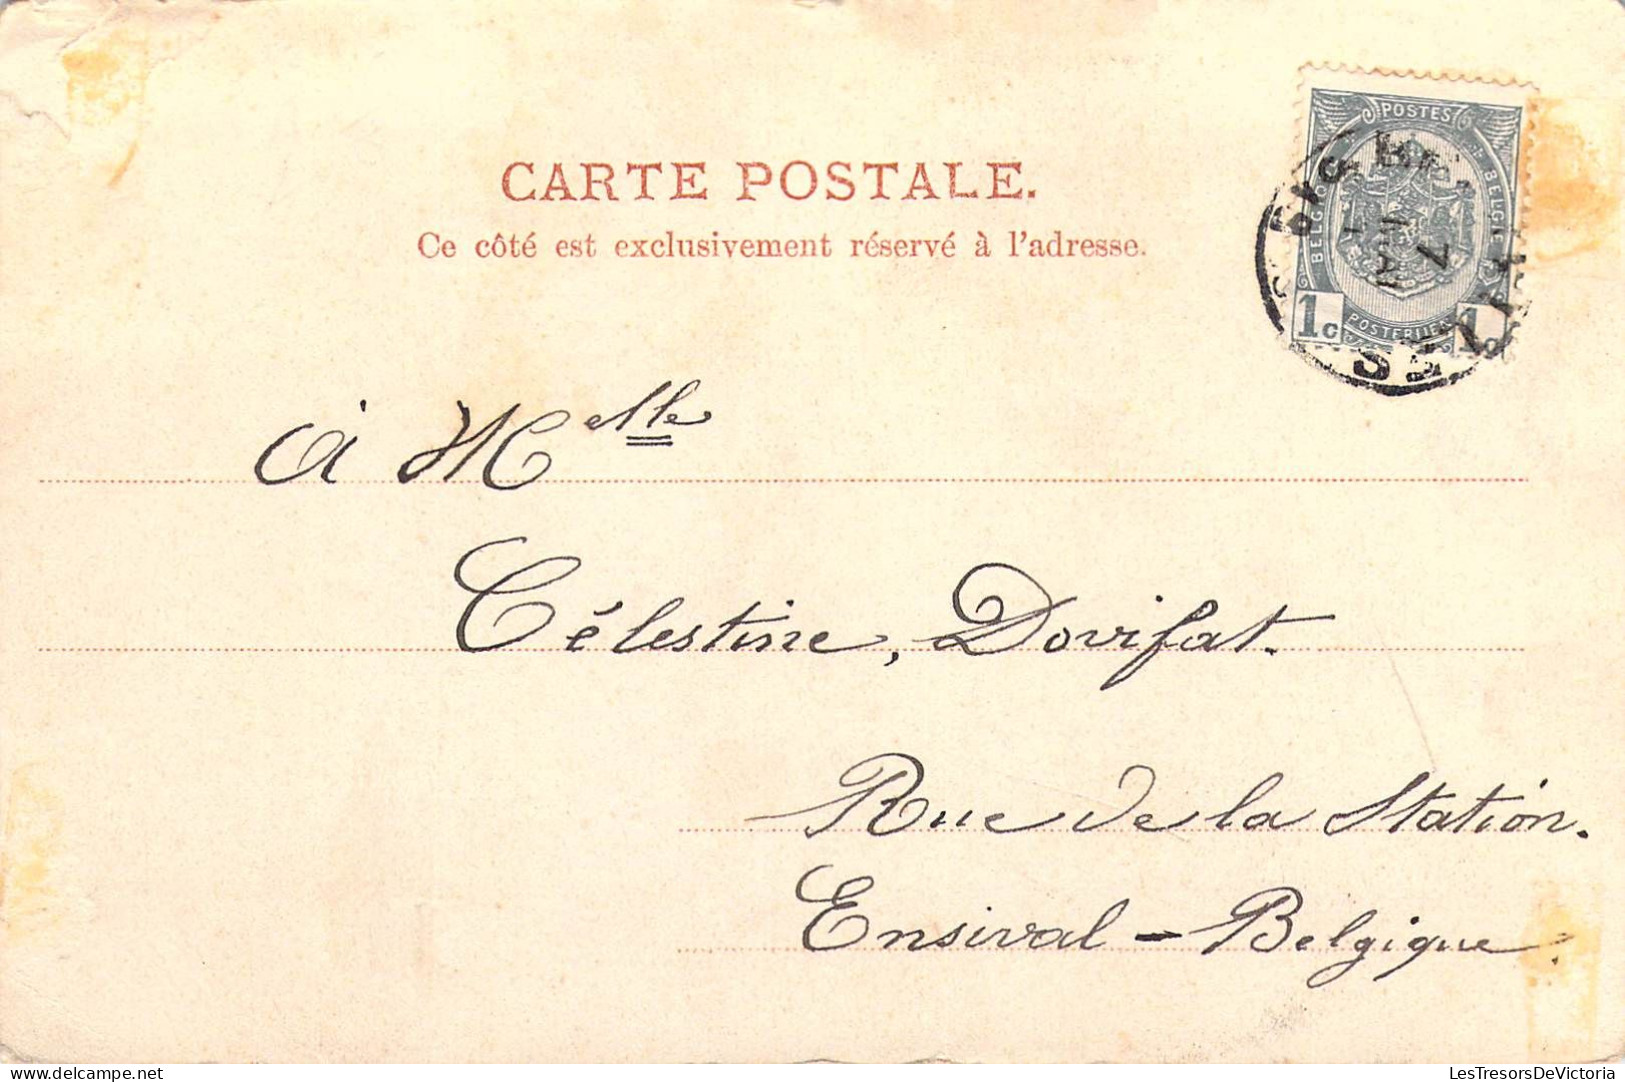 CARTE POSTALE.
Ce côté est exclusivement réservé à l'adresse.
POSTES
BELGIQUE BELGIË
POSTERIJEN
1c 1c
7 MAI
À Melle
Célestine, Dovifat.
Rue de la Station.
Ensival - Belgique.
LesTresorsDeVictoria
delcampe.net